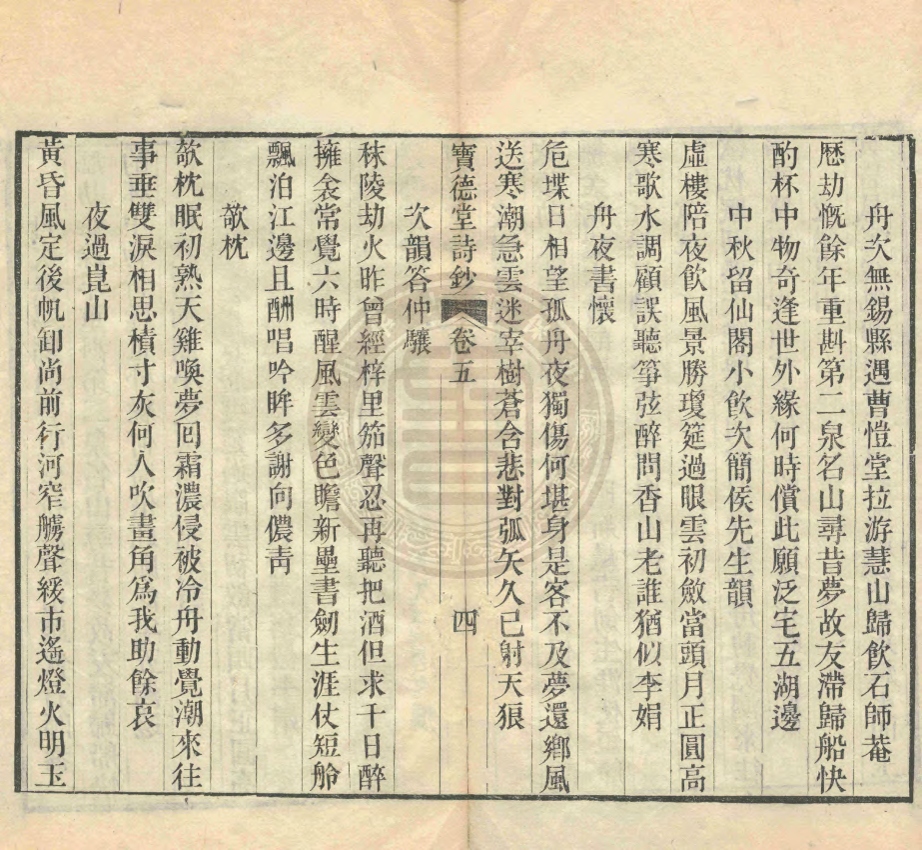 舟次無錫縣遇曹愷堂拉游慧山歸飲石師菴
歷劫慨餘年重斟第二泉名山尋昔夢故友滯歸船快
酌杯中物奇逢世外緣何時償此願泛宅五湖邊
中秋留仙閣小飲次簡侯先生韻
虛樓陪夜飲風景勝瓊筵過眼雲初斂當頭月正圓高
寒歌水調顧誤聽箏弦醉問香山老誰猶似李娟
舟夜書懷
危堞日相望孤舟夜獨傷何堪身是客不及夢還鄉風
送寒潮急雲迷宰樹蒼含悲對弧矢久已射天狼
寶德堂詩鈔 卷五 四
次韻答仲驤
秣陵劫火昨曾經梓里笳聲忍再聽把酒但求千日醉
擁衾常覺六時醒風雲變色瞻新壘書劒生涯仗短舲
飄泊江邊且酬唱吟眸多謝向儂靑
欹枕
欹枕眠初熟天雞喚夢囘霜濃侵被冷舟動覺潮來往
事垂雙淚相思積寸灰何人吹畫角爲我助餘哀
夜過崑山
黃昏風定後帆卸尚前行河窄艣聲緩市遙燈火明玉